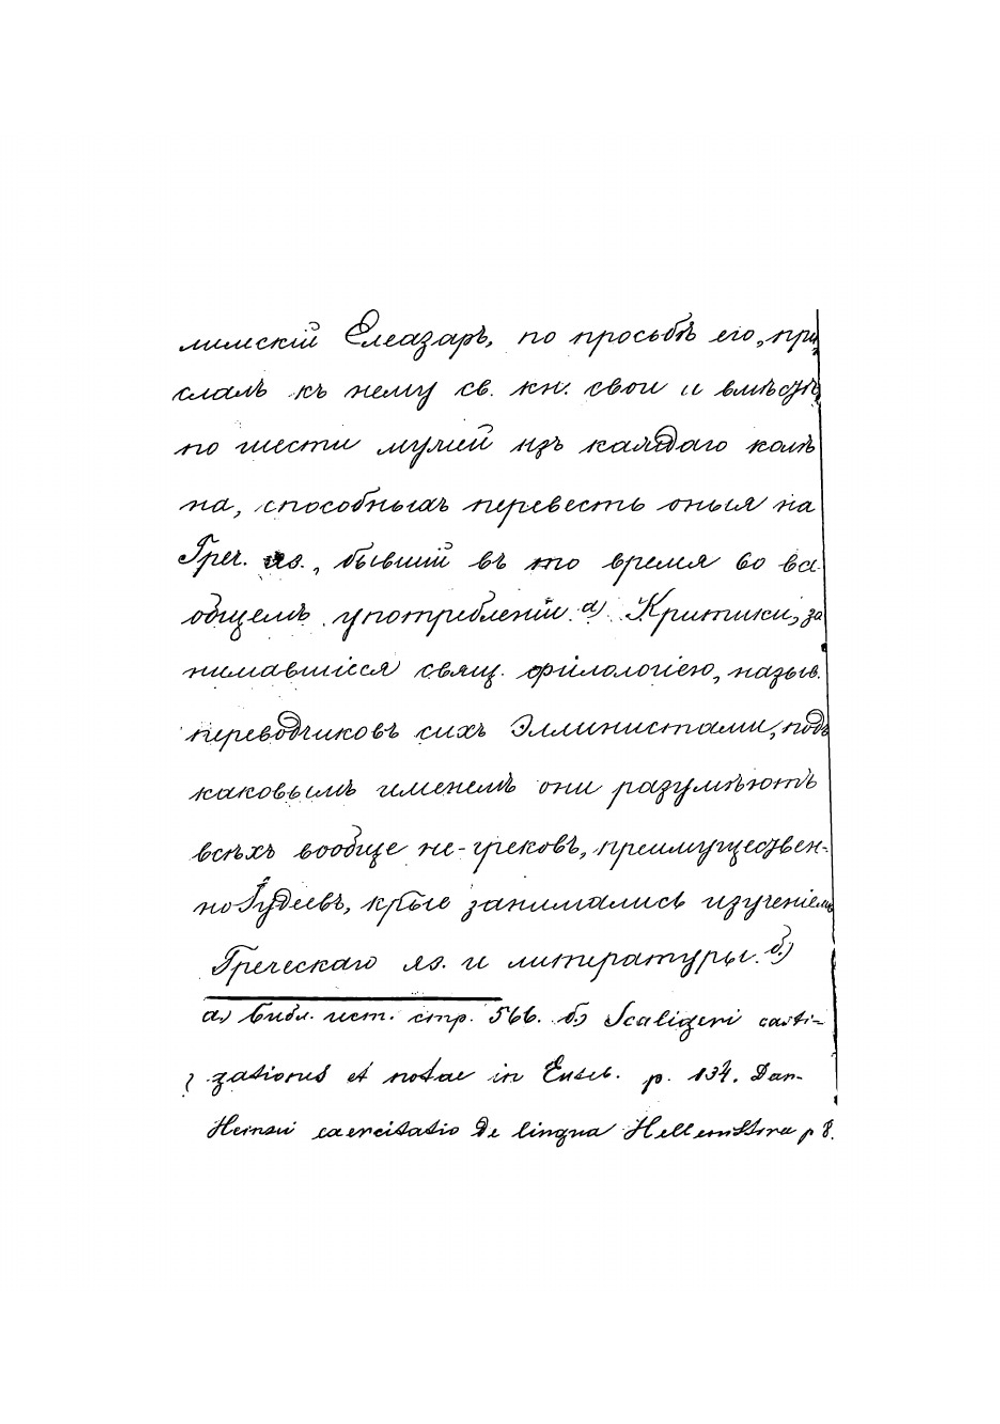 лимскій Елеазаръ, по просьбѣ его, при
слалъ къ нему св. кн. свои и вмѣстѣ
по шести мужей изъ каждаго колѣ
на, способныхъ перевесть оныя на
Греч. яз., бывшій въ то время во все
общемъ употребленіи а) Критики, за
нимавшіеся свящ. филологіею, назыв.
переводчиковъ сихъ Эллинистами, подъ
каковымъ именемъ они разумѣютъ
всѣхъ вообще не-грековъ, преимуществен-
но Іудеевъ, крые занимались изученіемъ
Греческаго яз. и литературы. б)
а) Библ. ист. стр. 566. б) Scaligeri casti-
gationes et notae in Euseb. p. 134. Dan-
Heinsii exercitatio de lingua Hellenistica p 8.